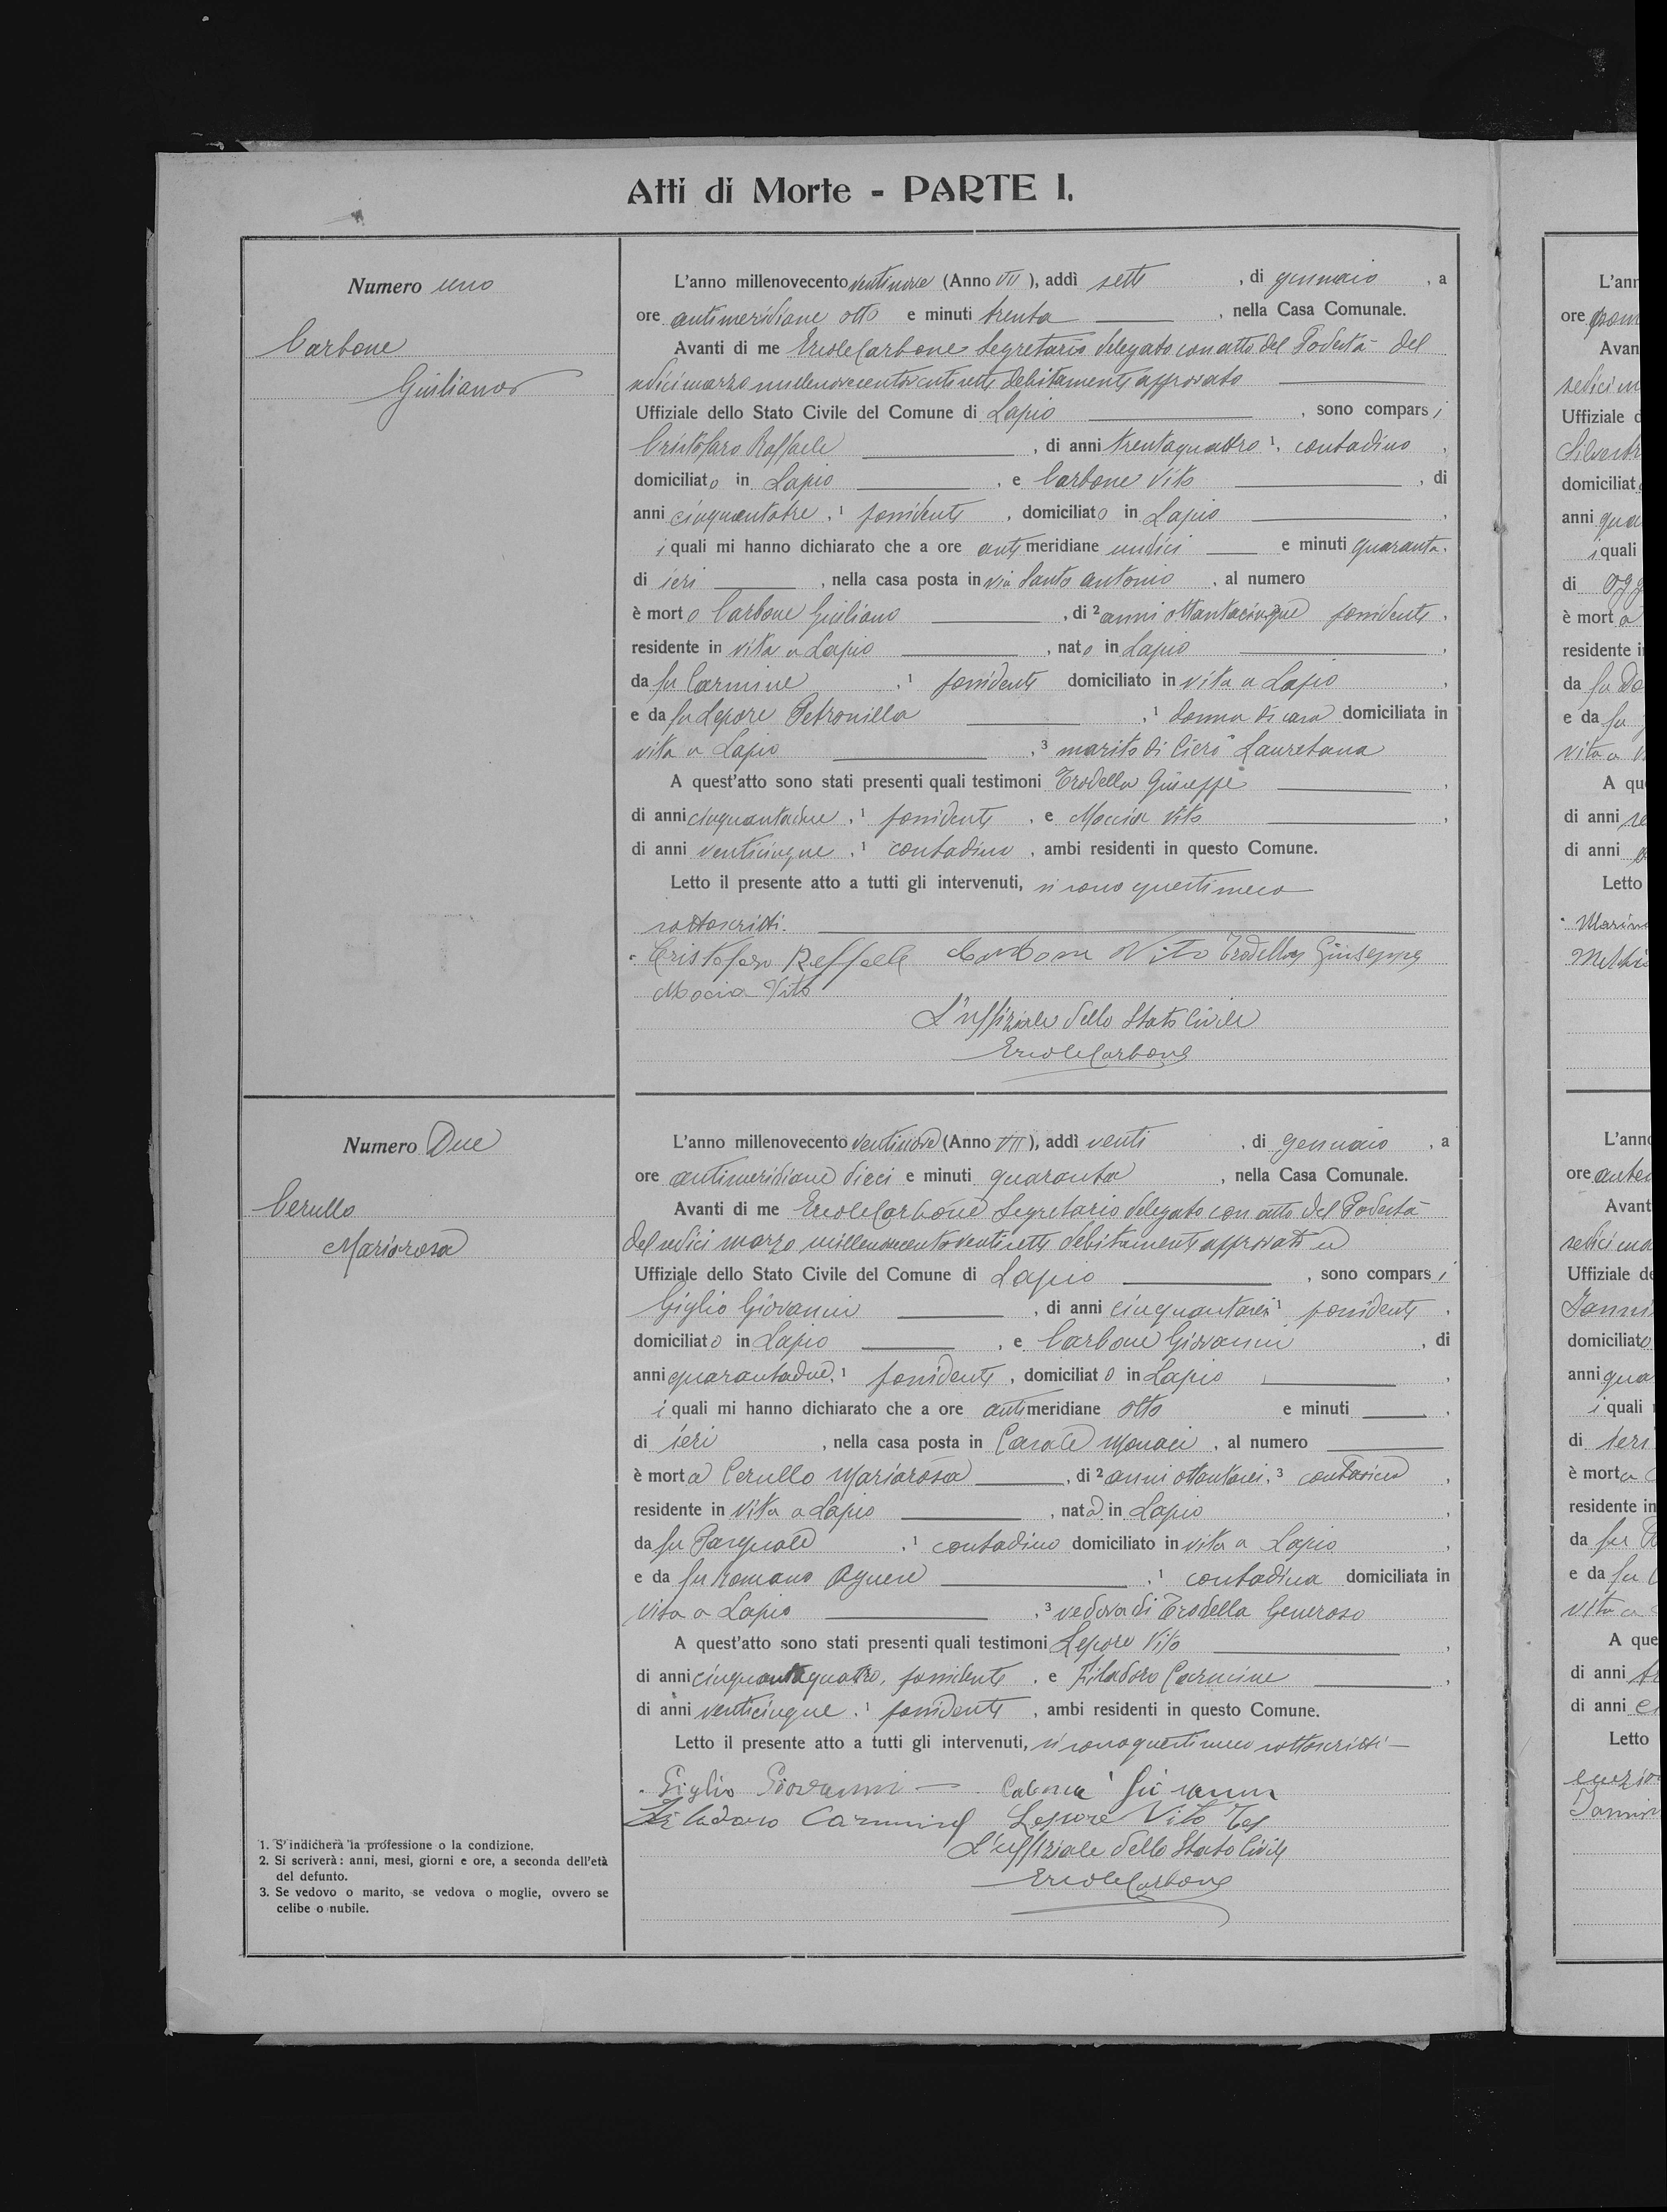 Atti di Morte - PARTE I.
Numero uno
Carbone
Giuliano
L'anno millenovecento ventinove (Anno VII), addì sette, di gennaio, a
ore antimeridiane otto e minuti trenta, nella Casa Comunale.
Avanti di me Ercole Carbone Segretario delegato con atto del Podestà del
sedici marzo millenovecentoventisette debitamente approvato
Uffiziale dello Stato Civile del Comune di Lapio, sono comparsi
Cristofaro Raffaele, di anni trentaquattro 1, contadino,
domiciliato in Lapio, e Carbone Vito, di
anni cinquantatre, 1 possidente, domiciliato in Lapio,
i quali mi hanno dichiarato che a ore antimeridiane undici e minuti quaranta,
di ieri, nella casa posta in via Santo Antonio, al numero
è morto Carbone Giuliano, di 2 anni ottantacinque possidente,
residente in vita a Lapio, nato in Lapio,
da fu Carmine, 1 possidente domiciliato in vita a Lapio,
e da fu Lepore Petronilla, 1 donna di casa domiciliata in
vita a Lapio, 3 marito di Ciero Lauretana
A quest'atto sono stati presenti quali testimoni Trodella Giuseppe,
di anni cinquantadue, 1 possidente, e Moccia Vito,
di anni venticinque, 1 contadino, ambi residenti in questo Comune.
Letto il presente atto a tutti gli intervenuti, si sono questi meco
sottoscritti.
Cristofaro Raffaele Carbone Vito Trodella Giuseppe
Mocia Vito
L'uffiziale dello Stato Civile
Ercole Carbone
Numero Due
Cerullo
Mariarosa
L'anno millenovecento ventinove (Anno VII), addì venti, di gennaio, a
ore antimeridiane dieci e minuti quaranta, nella Casa Comunale.
Avanti di me Ercole Carbone Segretario delegato con atto del Podestà
del sedici marzo millenovecentoventisette debitamente approvato
Uffiziale dello Stato Civile del Comune di Lapio, sono comparsi
Giglio Giovanni, di anni cinquantasei 1 possidente,
domiciliato in Lapio, e Carbone Giovanni, di
anni quarantadue, 1 possidente, domiciliato in Lapio,
i quali mi hanno dichiarato che a ore antimeridiane otto e minuti,
di ieri, nella casa posta in Casale Monaci, al numero
è morta Cerullo Mariarosa, di 2 anni ottantasei, 3 contadina,
residente in vita a Lapio, nata in Lapio,
da fu Pasquale, 1 contadino domiciliato in vita a Lapio,
e da fu Romano Agnese, 1 contadina domiciliata in
vita a Lapio, 3 vedova di Trodella Generoso
A quest'atto sono stati presenti quali testimoni Lepore Vito,
di anni cinquantaquattro, possidente, e Filadoro Carmine,
di anni venticinque, 1 possidente, ambi residenti in questo Comune.
Letto il presente atto a tutti gli intervenuti, si sono questi meco sottoscritti
Giglio Giovanni
Filadoro Carmine Lepore Vito Tes
L'uffiziale dello Stato Civile
Ercole Carbone
1. S'indicherà la professione o la condizione.
2. Si scriverà: anni, mesi, giorni e ore, a seconda dell'età
del defunto.
3. Se vedovo o marito, se vedova o moglie, ovvero se
celibe o nubile.